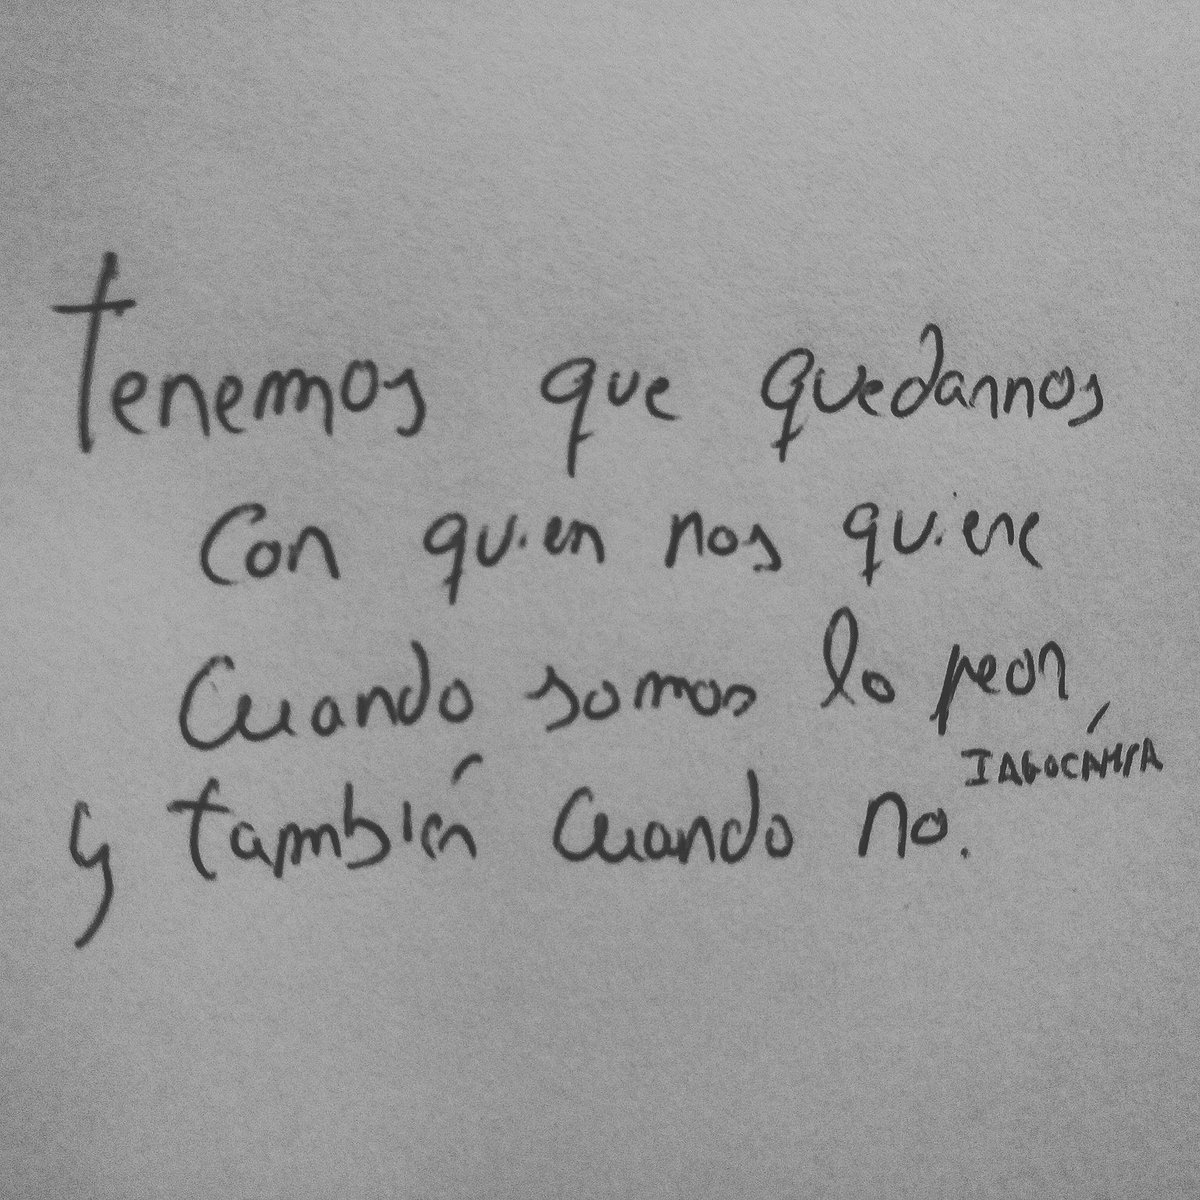 Tenemos que quedarnos
con quien nos quiere
cuando somos lo peor
IAGO CÁMPA
y también cuando no.